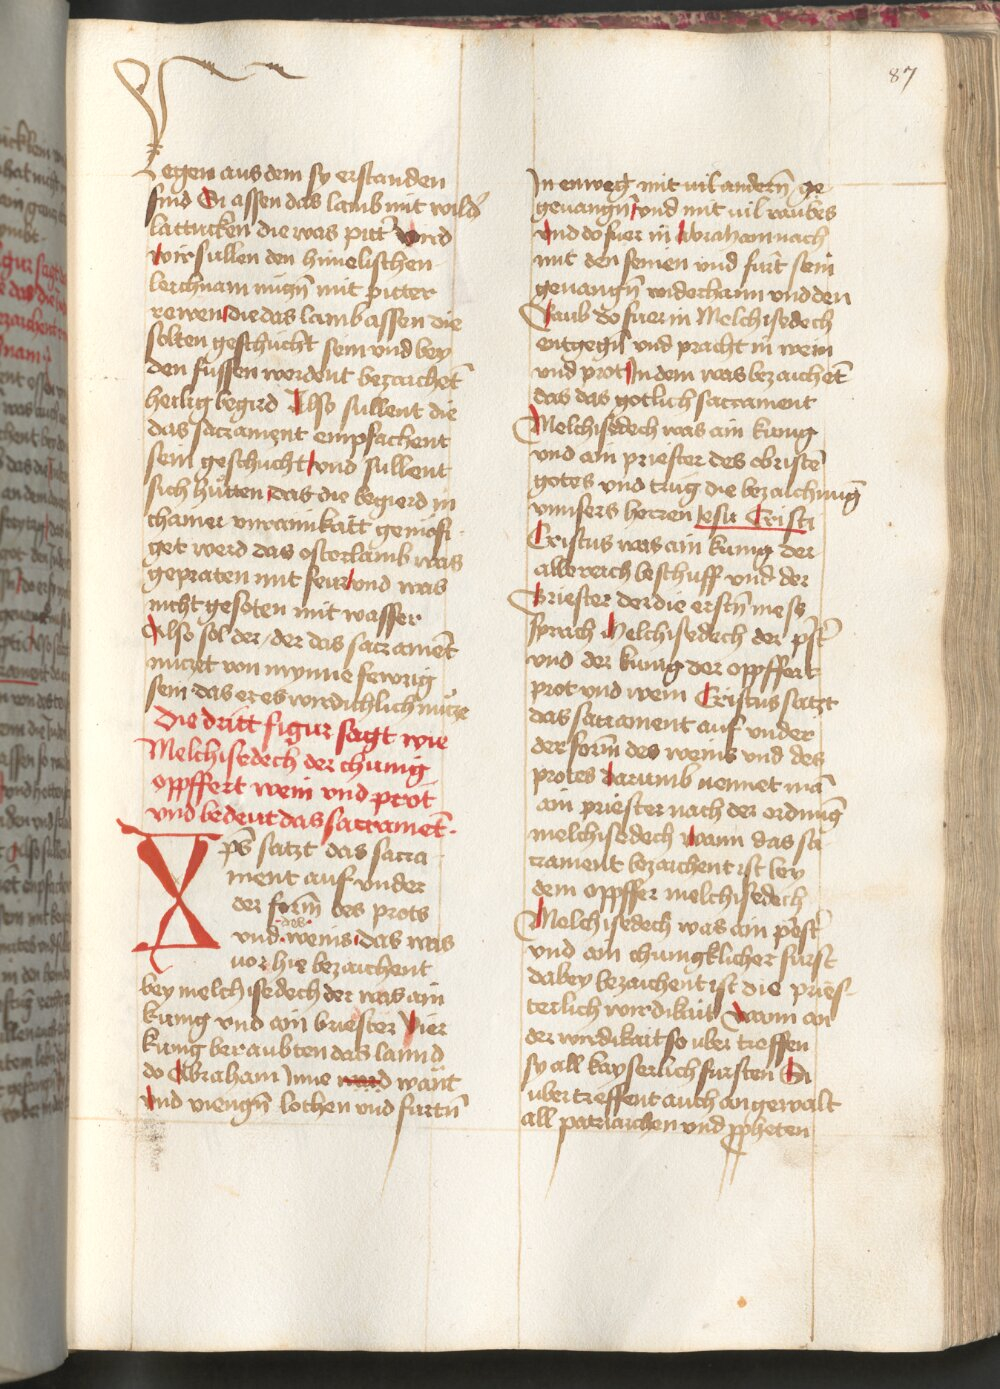 87
legen aus dem sy erstanden
sind Di assen das lamb mit wild̾
lattucken die was pitt̾ vnd
wir süllen den himelischen
leichnam niegn̄ mit pitter
rewen die das lamb assen die
solten geschücht sein vnd bey
den füssen werdent bezaichet̄
heilig begird Also süllent die
das sacrament empfachent
sein geschücht vnd süllent
sich hütten das die begierd in
chainer vnrainikait gemosi
get werd das osterlamb was
gepraten mit feur vnd was
nicht gesoten mit wasser
Also sol der der das sacramēt
nüczet von mynne fewrig
sein das er es wirdichlich nücze
Die dritt figur sagt wie
Melchisedech der chünig
oppffert wein vnd prot
vnd bedeut das sacramēt
Xp̄s satzt das sacra
ment auf vnder
der form̄ des prots
vnd des weins das was
vor hie bezaichent
bey melchisedech der was ain
künig vnd ain briester Vier
küng beraubten das lannd
do Abraham Inne want
Vnd viengn̄ lochen vnd furtn̄
In enweg mit vil andern̄ ge
geuangn̄ vnd mit vil raubes
Vnd do fuer in Abraham nach
mit den seinen vnd fürt sein
geuangn̄ widerhaim vnd den
Raub do fuer in Melchisedech
entgegn̄ vnd pracht in wein
vnd prot In dem was bezaichēt
das das gotlich sacrament
Melchisedech was ain künig
vnd ain priester des obristē
gotes vnd trug die bezaichnūg
vnnsers herren Jesu Cristi
Cristus was ain künig der
alle reich beschuff vnd der
Briester der die erstn̄ mess
sprach Melchisedech der pst̾
vnd der künig der oppffert
prot vnd wein Cristus satzt
das sacrament auf vnder
der form̄ des weins vnd des
protes darumb nennet mā
ain priester nach der ordnūg
melchisedech wann das sa
crament bezaichent ist bey
dem oppffer melchisedech
Melchisedech was ain pest̾
vnd ain chünigklicher fürst
dabey bezaichent ist die pries
terlich wirdikait Wann an
der wirdikait so vber treffen
sy all kayserlich fürsten Di
vbertreffent auch an gewalt
all patriarchen vnd pp̄heten